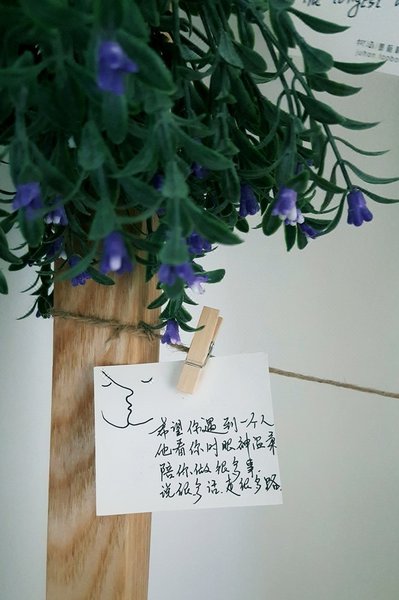 the longest
希望你遇到一个人
他看你时眼神温柔
陪你做很多事
说很多话.走很多路